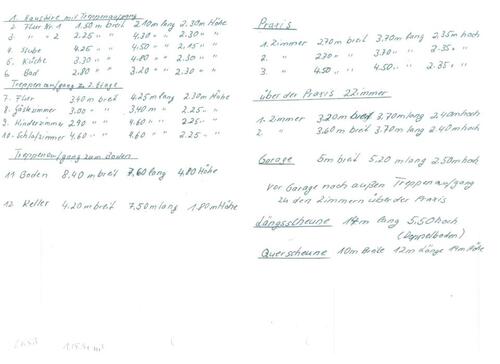 1. Haustüre mit Treppenaufgang
2. Flur Nr. 1 1.50 m breit 2.10 m lang 2.30 m Höhe
3. " " 2 2.25 " " 4.30 " " 2.30 " "
4. Stube 4.25 " " 4.50 " " 2.15 " "
5. Küche 3.30 " " 4.20 " " 2.30 " "
6. Bad 2.80 " " 3.20 " " 2.30 " "
Treppenaufgang zu 2. Etage
7. Flur 3.40 m breit 4.25 m lang 2.30 m Höhe
8. Gästezimmer 3.00 " " 3.40 m " 2.25 " "
9. Kinderzimmer 2.90 " " 4.60 " " 2.25 " "
10. Schlafzimmer 4.60 " " 4.60 " " 2.25 " "
Treppenaufgang zum Boden
11 Boden 8.40 m breit 7.60 lang 4.80 Höhe
12. Keller 4.20 m breit 7.50 m lang 1.80 m Höhe
Praxis
1. Zimmer 2.70 m breit 3.70 m lang 2.35 m hoch
2. " 3.30 " " 3.70 " " 2.35 " "
3. " 4.50 " " 4.50 " " 2.35 " "
über der Praxis 2 Zimmer
1. Zimmer 3.20 m breit 3.70 m lang 2.40 m hoch
2. " 3.60 m breit 3.70 m lang 2.40 m hoch
Garage 6 m breit 5.20 m lang 2.50 m hoch
vor Garage nach außen Treppenaufgang
zu den Zimmern über der Praxis
Längsscheune 17 m lang 5.50 hoch
(Doppelboden)
Querscheune 10 m Breite 12 m Länge 14 m Höhe